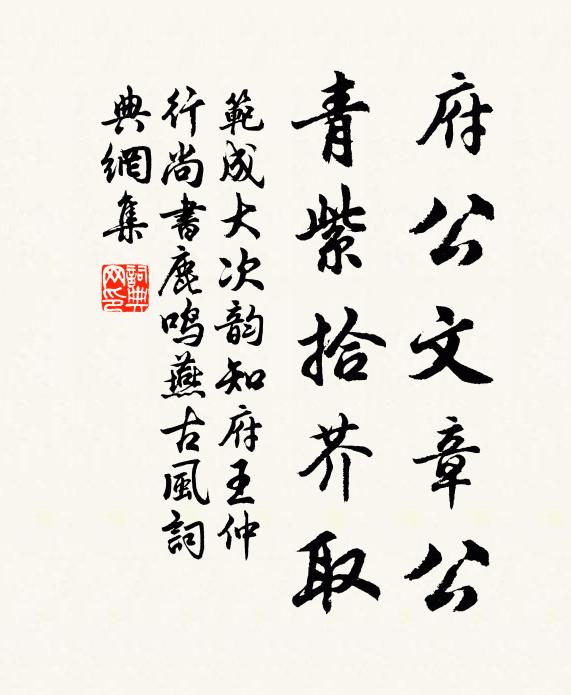 府公文章公
青紫拾芥取
範成大次韵知府王仲
行尚書鹿鳴燕古風詞
典網集
詞典网印